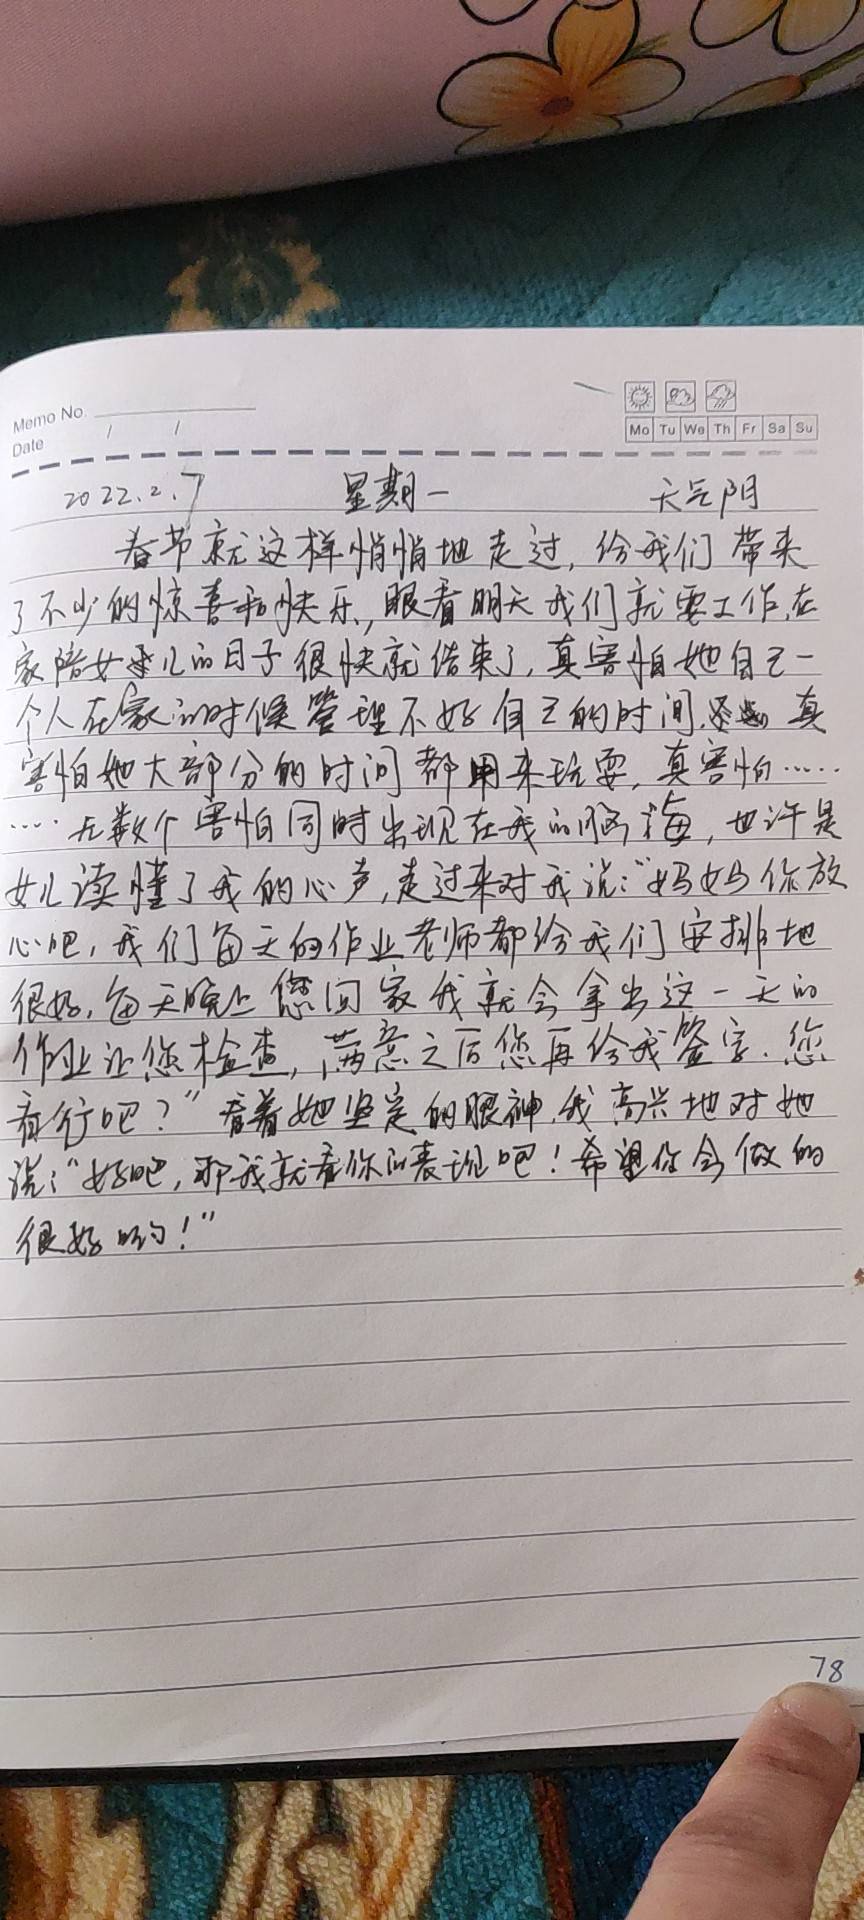 Memo No.
Date / /
Mo Tu We Th Fr Sa Su
2022.2.7 星期一 天气阴
春节就这样悄悄地走过,给我们带来
了不少的惊喜和快乐,眼看明天我们就要工作,在
家陪女儿的日子很快就结束了,真害怕她自己一
个人在家的时候管理不好自己的时间,真
害怕她大部分的时间都用来玩耍,真害怕……
……无数个害怕同时出现在我的脑海,也许是
女儿读懂了我的心声,走过来对我说:“妈妈你放
心吧,我们每天的作业老师都给我们安排地
很好,每天晚上您回家我就会拿出这一天的
作业让您检查,满意之后您再给我签字.您
看行吧?”看着她坚定的眼神,我高兴地对她
说:“好吧,那我就看你的表现吧!希望你会做的
很好哟!”
78